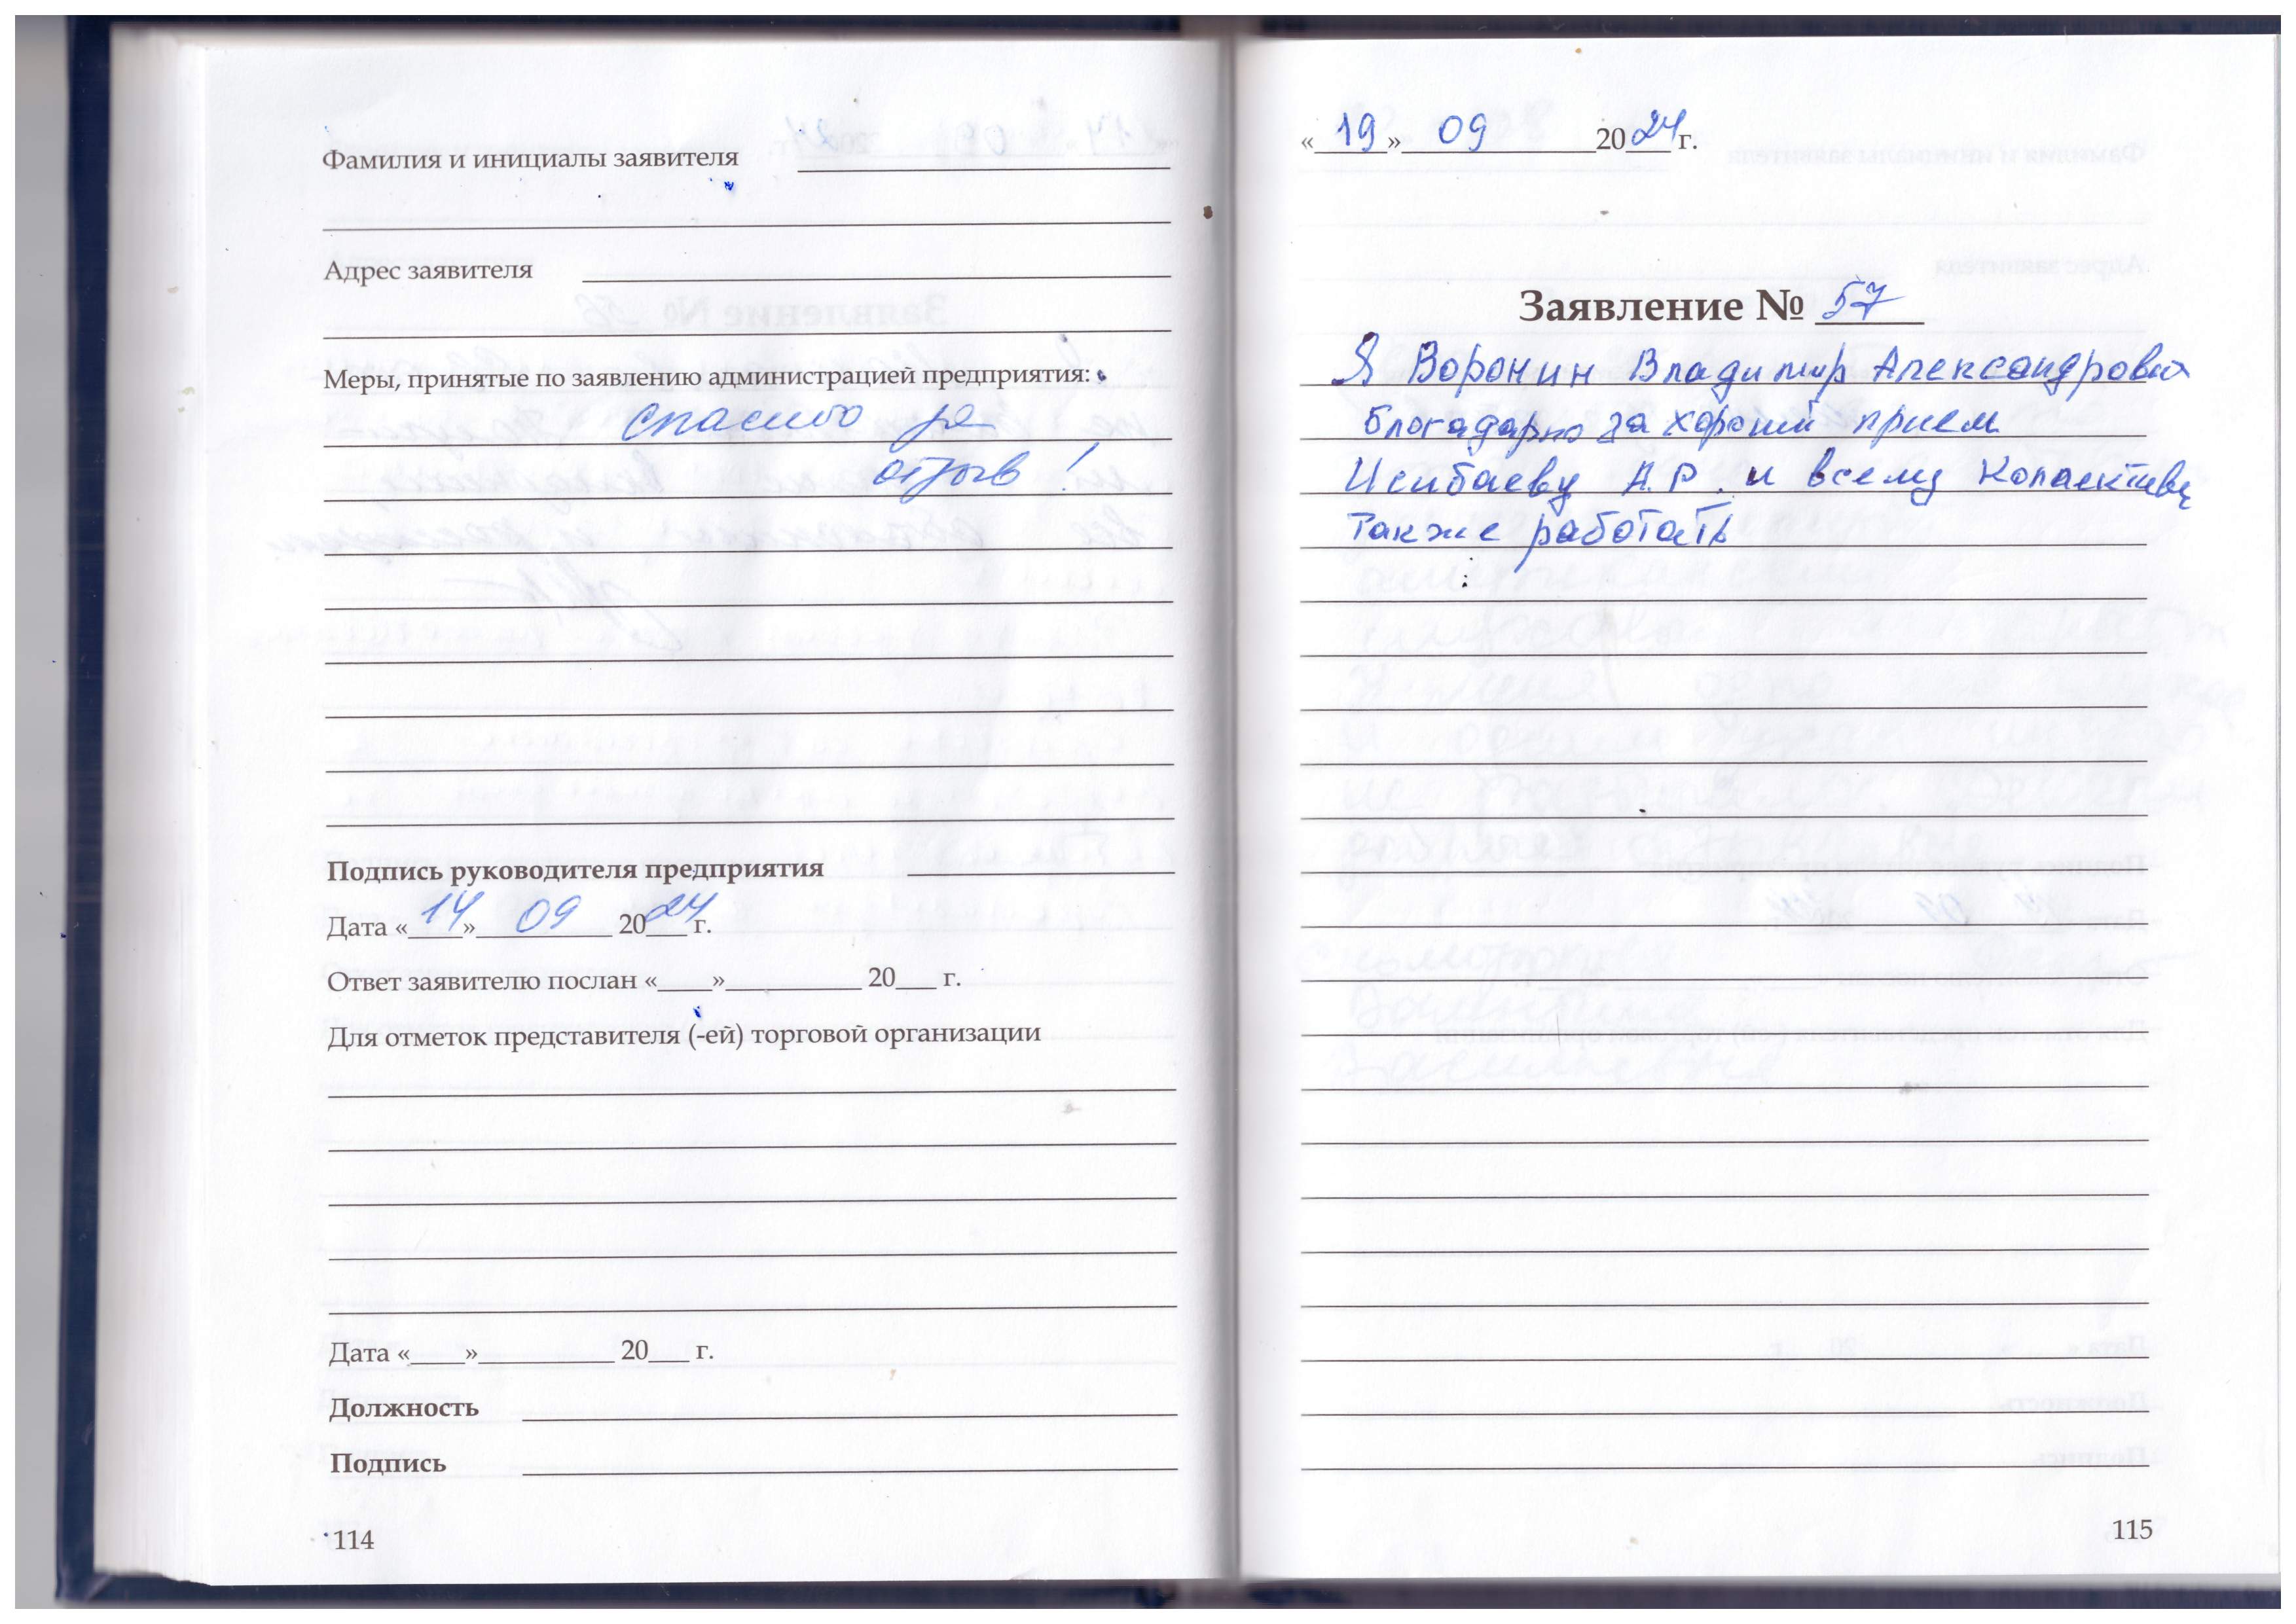 Фамилия и инициалы заявителя
Адрес заявителя
Меры, принятые по заявлению администрацией предприятия:
Спасибо за
отзыв!
Подпись руководителя предприятия
Дата «14» 09 2024 г.
Ответ заявителю послан «____»__________ 20___ г.
Для отметок представителя (-ей) торговой организации
Дата «____»__________ 20___ г.
Должность
Подпись
114
«19» 09 2024 г.
Заявление № 57
Я Воронин Владимир Александрович
благадарю за хороший прием
Исибаеву А.Р. и всему Колаективу
также работать
115